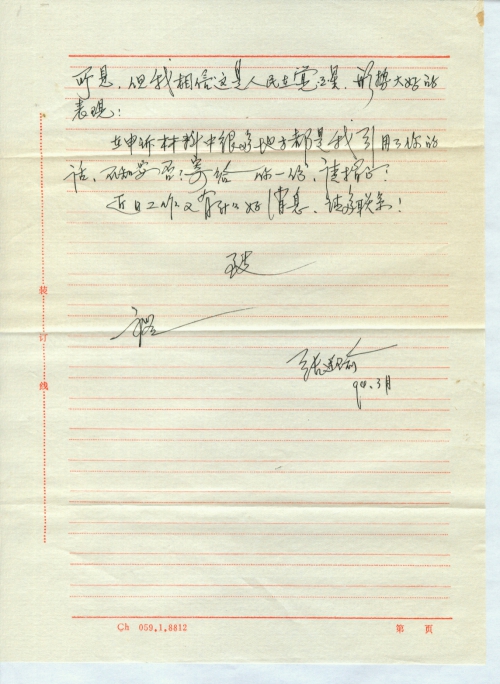 所思,但我相信这是人民在觉醒,形势大好的
表现:
在申诉材料中很多地方都是我引用了你的
话,不知妥否?寄给你一份,请指正!
近日工作又有什么好消息,请多联系!
致
礼
张
90.3月
装
订
线
Ch 059.1.8812
第 页